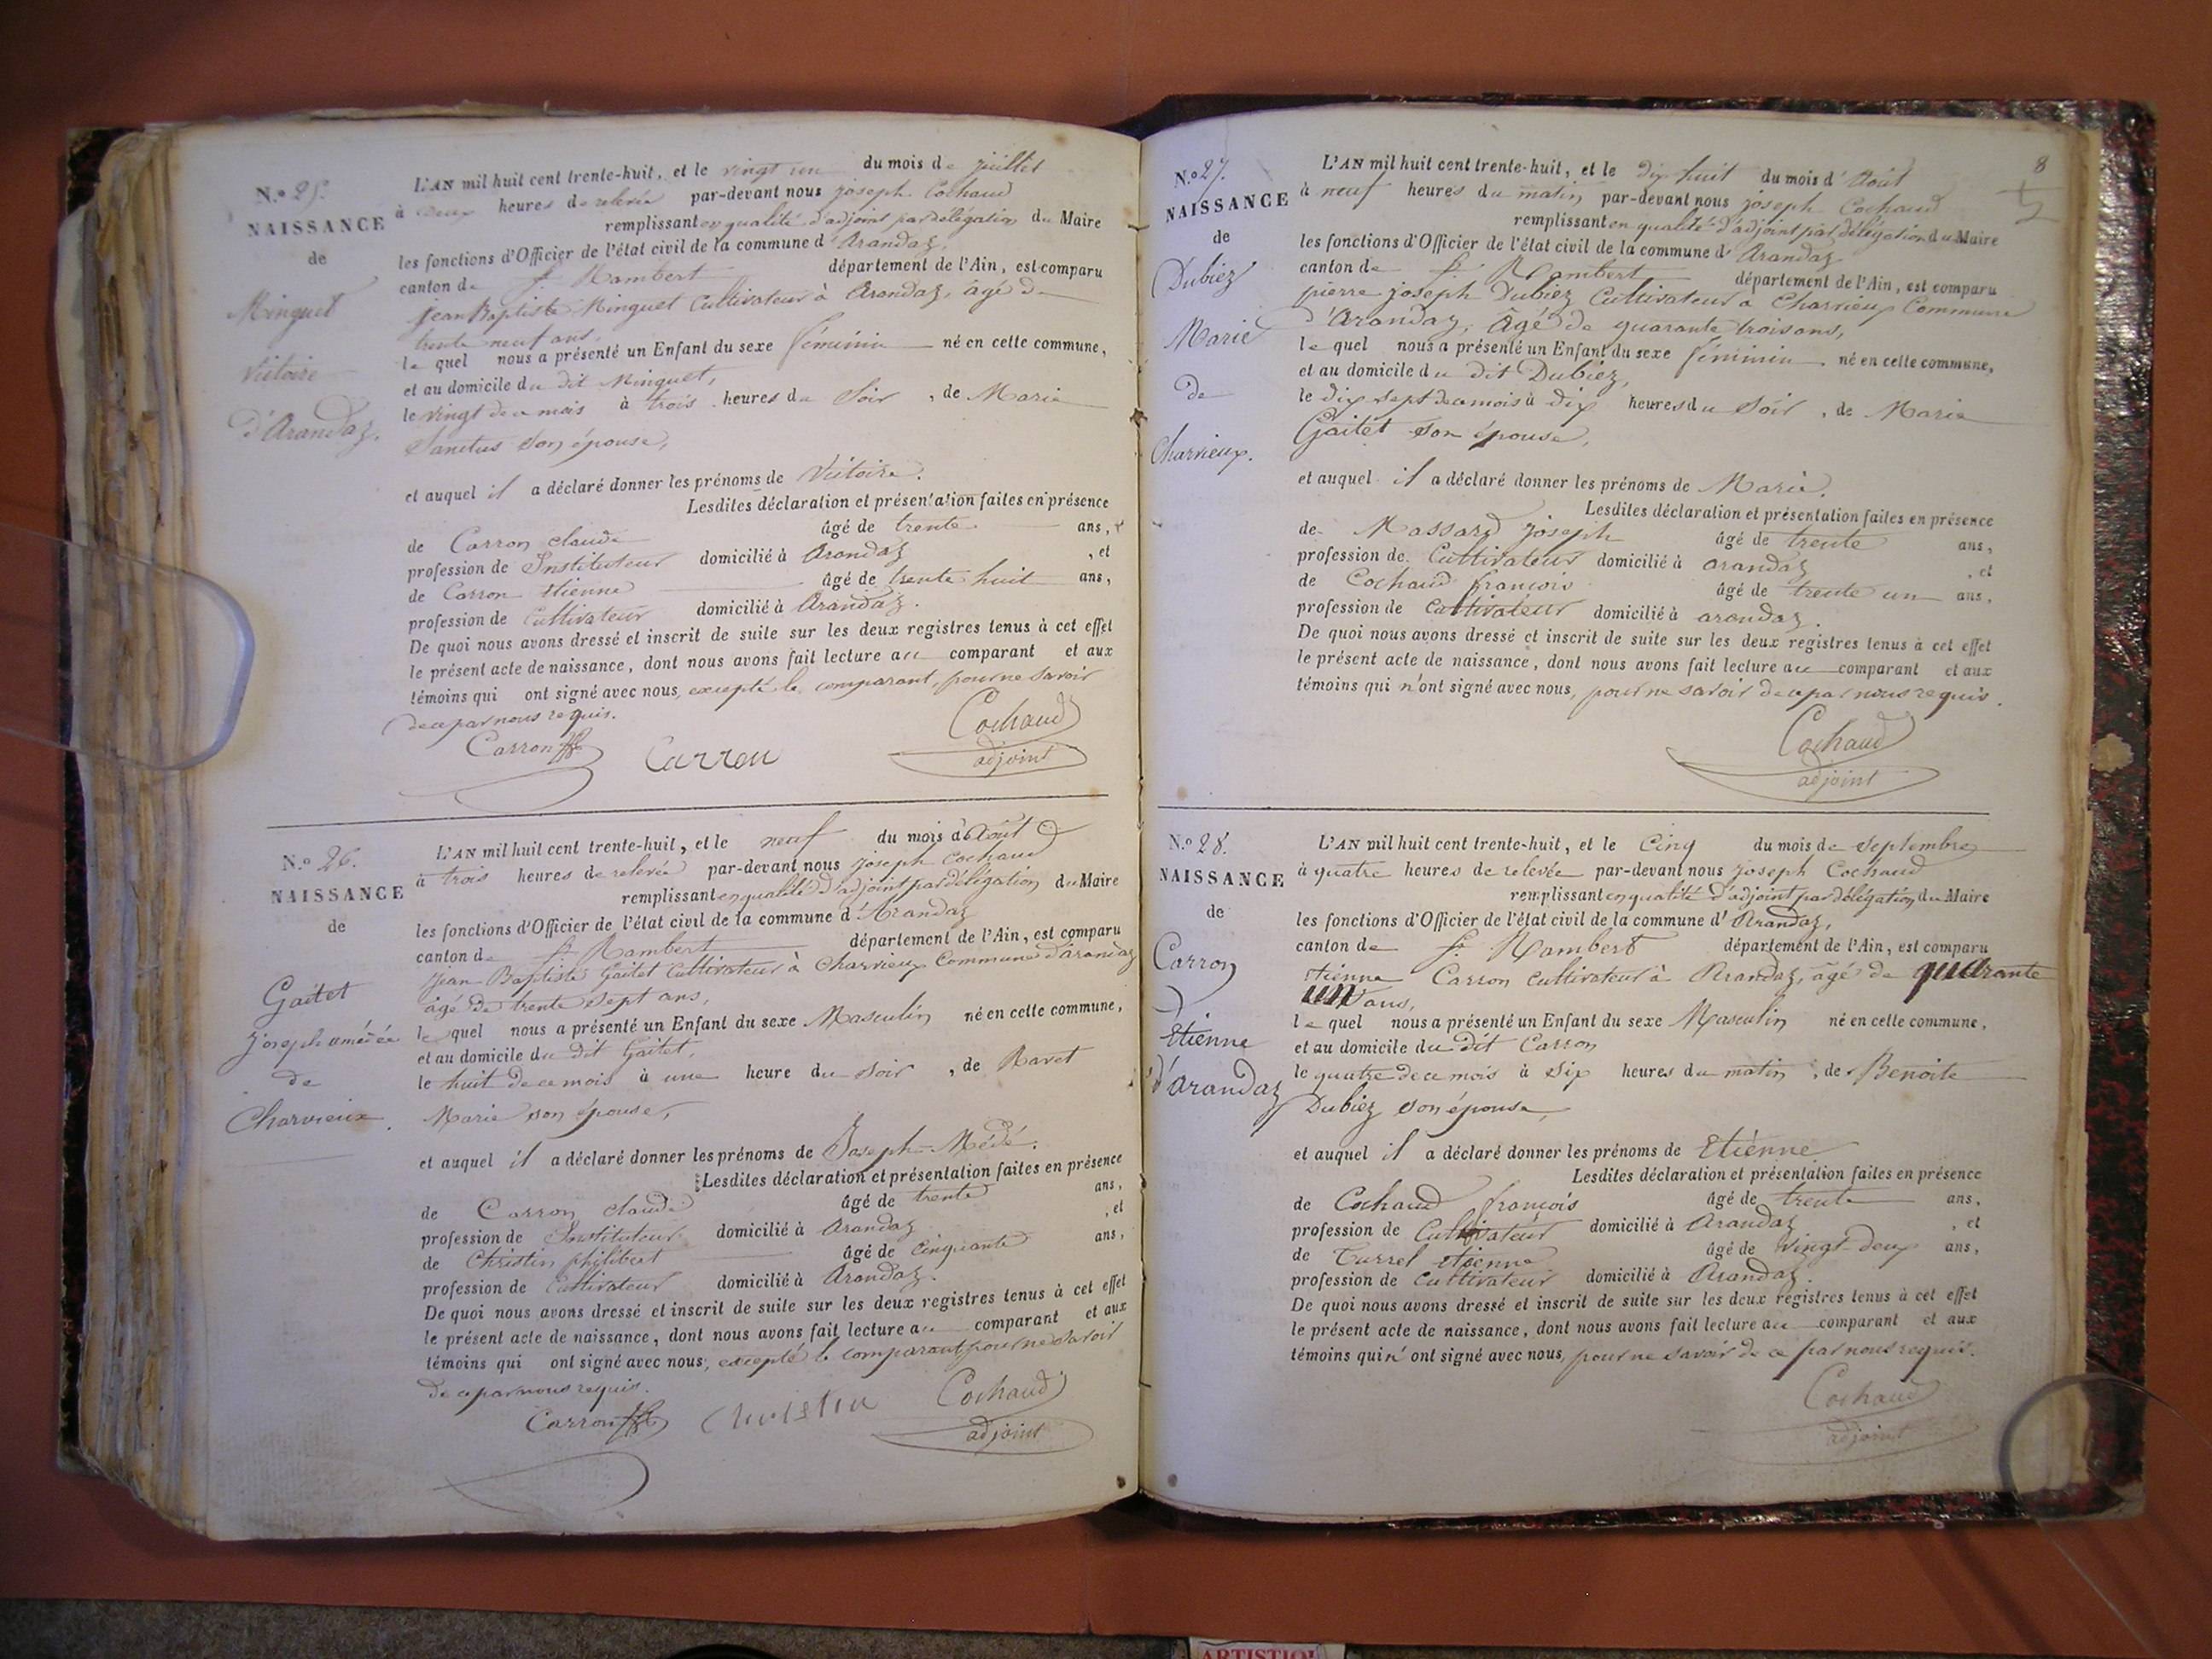 N.o 25.
NAISSANCE
de
Minguet
Victoire
d'Arandaz.
L'AN mil huit cent trente-huit, et le vingt un du mois de juillet
à deux heures de relevée par-devant nous joseph Cochaud
remplissant en qualité d'adjoint par délégation du Maire
les fonctions d'Officier de l'état civil de la commune d'Arandaz,
canton de St. Rambert département de l'Ain, est comparu
jean Baptiste Minguet Cultivateur à Arandaz, âgé de
trente neuf ans,
le quel nous a présenté un Enfant du sexe féminin né en cette commune,
et au domicile du dit Minguet,
le vingt de ce mois à trois heures du Soir, de Marie
Sanctus son épouse,
et auquel il a déclaré donner les prénoms de Victoire.
Lesdites déclaration et présentation faites en présence
de Carron claude âgé de trente ans,
profession de Instituteur domicilié à Arandaz, et
de Carron étienne âgé de trente huit ans,
profession de Cultivateur domicilié à Arandaz.
De quoi nous avons dressé et inscrit de suite sur les deux registres tenus à cet effet
le présent acte de naissance, dont nous avons fait lecture au comparant et aux
témoins qui ont signé avec nous, excepté le comparant, pour ne savoir
de ce par nous requis.
Carron Carron Cochaud
adjoint
N.o 26.
NAISSANCE
de
Gaitet
joseph amédée
de
Charvieux.
L'AN mil huit cent trente-huit, et le neuf du mois d'Août
à trois heures de relevée par-devant nous joseph Cochaud
remplissant en qualité d'adjoint par délégation du Maire
les fonctions d'Officier de l'état civil de la commune d'Arandaz
canton de St. Rambert département de l'Ain, est comparu
jean-Baptiste Gaitet Cultivateur à Charvieux Commune d'arandaz
âgé de trente sept ans,
le quel nous a présenté un Enfant du sexe Masculin né en cette commune,
et au domicile du dit Gaitet,
le huit de ce mois à une heure du soir, de Ravet
Marie son épouse,
et auquel il a déclaré donner les prénoms de Joseph-Médé.
Lesdites déclaration et présentation faites en présence
de Carron claude âgé de trente ans,
profession de Instituteur domicilié à Arandaz, et
de Christin philibert âgé de Cinquante ans,
profession de Cultivateur domicilié à Arandaz.
De quoi nous avons dressé et inscrit de suite sur les deux registres tenus à cet effet
le présent acte de naissance, dont nous avons fait lecture au comparant et aux
témoins qui ont signé avec nous, excepté le comparant, pour ne savoir
de ce par nous requis.
Carron Christin Cochaud
adjoint
8
N.o 27.
NAISSANCE
de
Dubiez
Marie
de
Charvieux.
L'AN mil huit cent trente-huit, et le dix huit du mois d'Août
à neuf heures du matin par-devant nous joseph Cochaud
remplissant en qualité d'adjoint par délégation du Maire
les fonctions d'Officier de l'état civil de la commune d'Arandaz
canton de St. Rambert département de l'Ain, est comparu
pierre joseph Dubiez Cultivateur à Charvieux Commune
d'Arandaz, âgé de quarante trois ans,
le quel nous a présenté un Enfant du sexe féminin né en cette commune,
et au domicile du dit Dubiez,
le dix sept de ce mois à dix heures du Soir, de Marie
Gaitet son épouse,
et auquel il a déclaré donner les prénoms de Marie.
Lesdites déclaration et présentation faites en présence
de Massard joseph âgé de trente ans,
profession de Cultivateur domicilié à arandaz, et
de Cochaud françois âgé de trente un ans,
profession de Cultivateur domicilié à arandaz.
De quoi nous avons dressé et inscrit de suite sur les deux registres tenus à cet effet
le présent acte de naissance, dont nous avons fait lecture au comparant et aux
témoins qui n'ont signé avec nous, pour ne savoir de ce par nous requis.
Cochaud
adjoint
N.o 28.
NAISSANCE
de
Carron
Etienne
d'Arandaz
L'AN mil huit cent trente-huit, et le Cinq du mois de septembre
à quatre heures de relevée par-devant nous joseph Cochaud
remplissant en qualité d'adjoint par délégation du Maire
les fonctions d'Officier de l'état civil de la commune d'Arandaz,
canton de St. Rambert département de l'Ain, est comparu
étienne Carron cultivateur à Arandaz, âgé de quarante
un ans,
le quel nous a présenté un Enfant du sexe Masculin né en cette commune,
et au domicile du dit Carron
le quatre de ce mois à six heures du matin, de Benoite
Dubiez son épouse,
et auquel il a déclaré donner les prénoms de Etienne
Lesdites déclaration et présentation faites en présence
de Cochaud françois âgé de trente ans,
profession de Cultivateur domicilié à Arandaz, et
de Turrel étienne âgé de vingt-deux ans,
profession de Cultivateur domicilié à Arandaz.
De quoi nous avons dressé et inscrit de suite sur les deux registres tenus à cet effet
le présent acte de naissance, dont nous avons fait lecture au comparant et aux
témoins qui n'ont signé avec nous, pour ne savoir de ce par nous requis.
Cochaud
adjoint